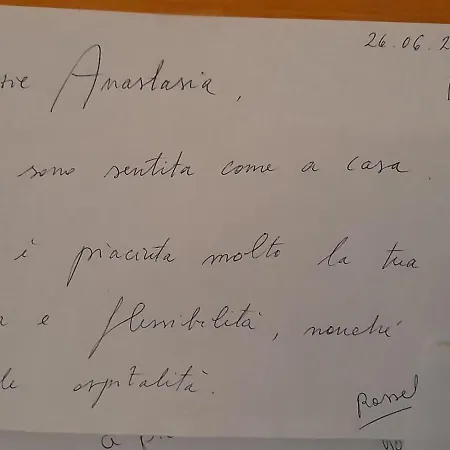 26.06.2
sie Anastasia,
sono sentita come a casa.
è piaciuta molto la tua
a e flessibilità, nonché
le ospitalità.
Rossel
a pi